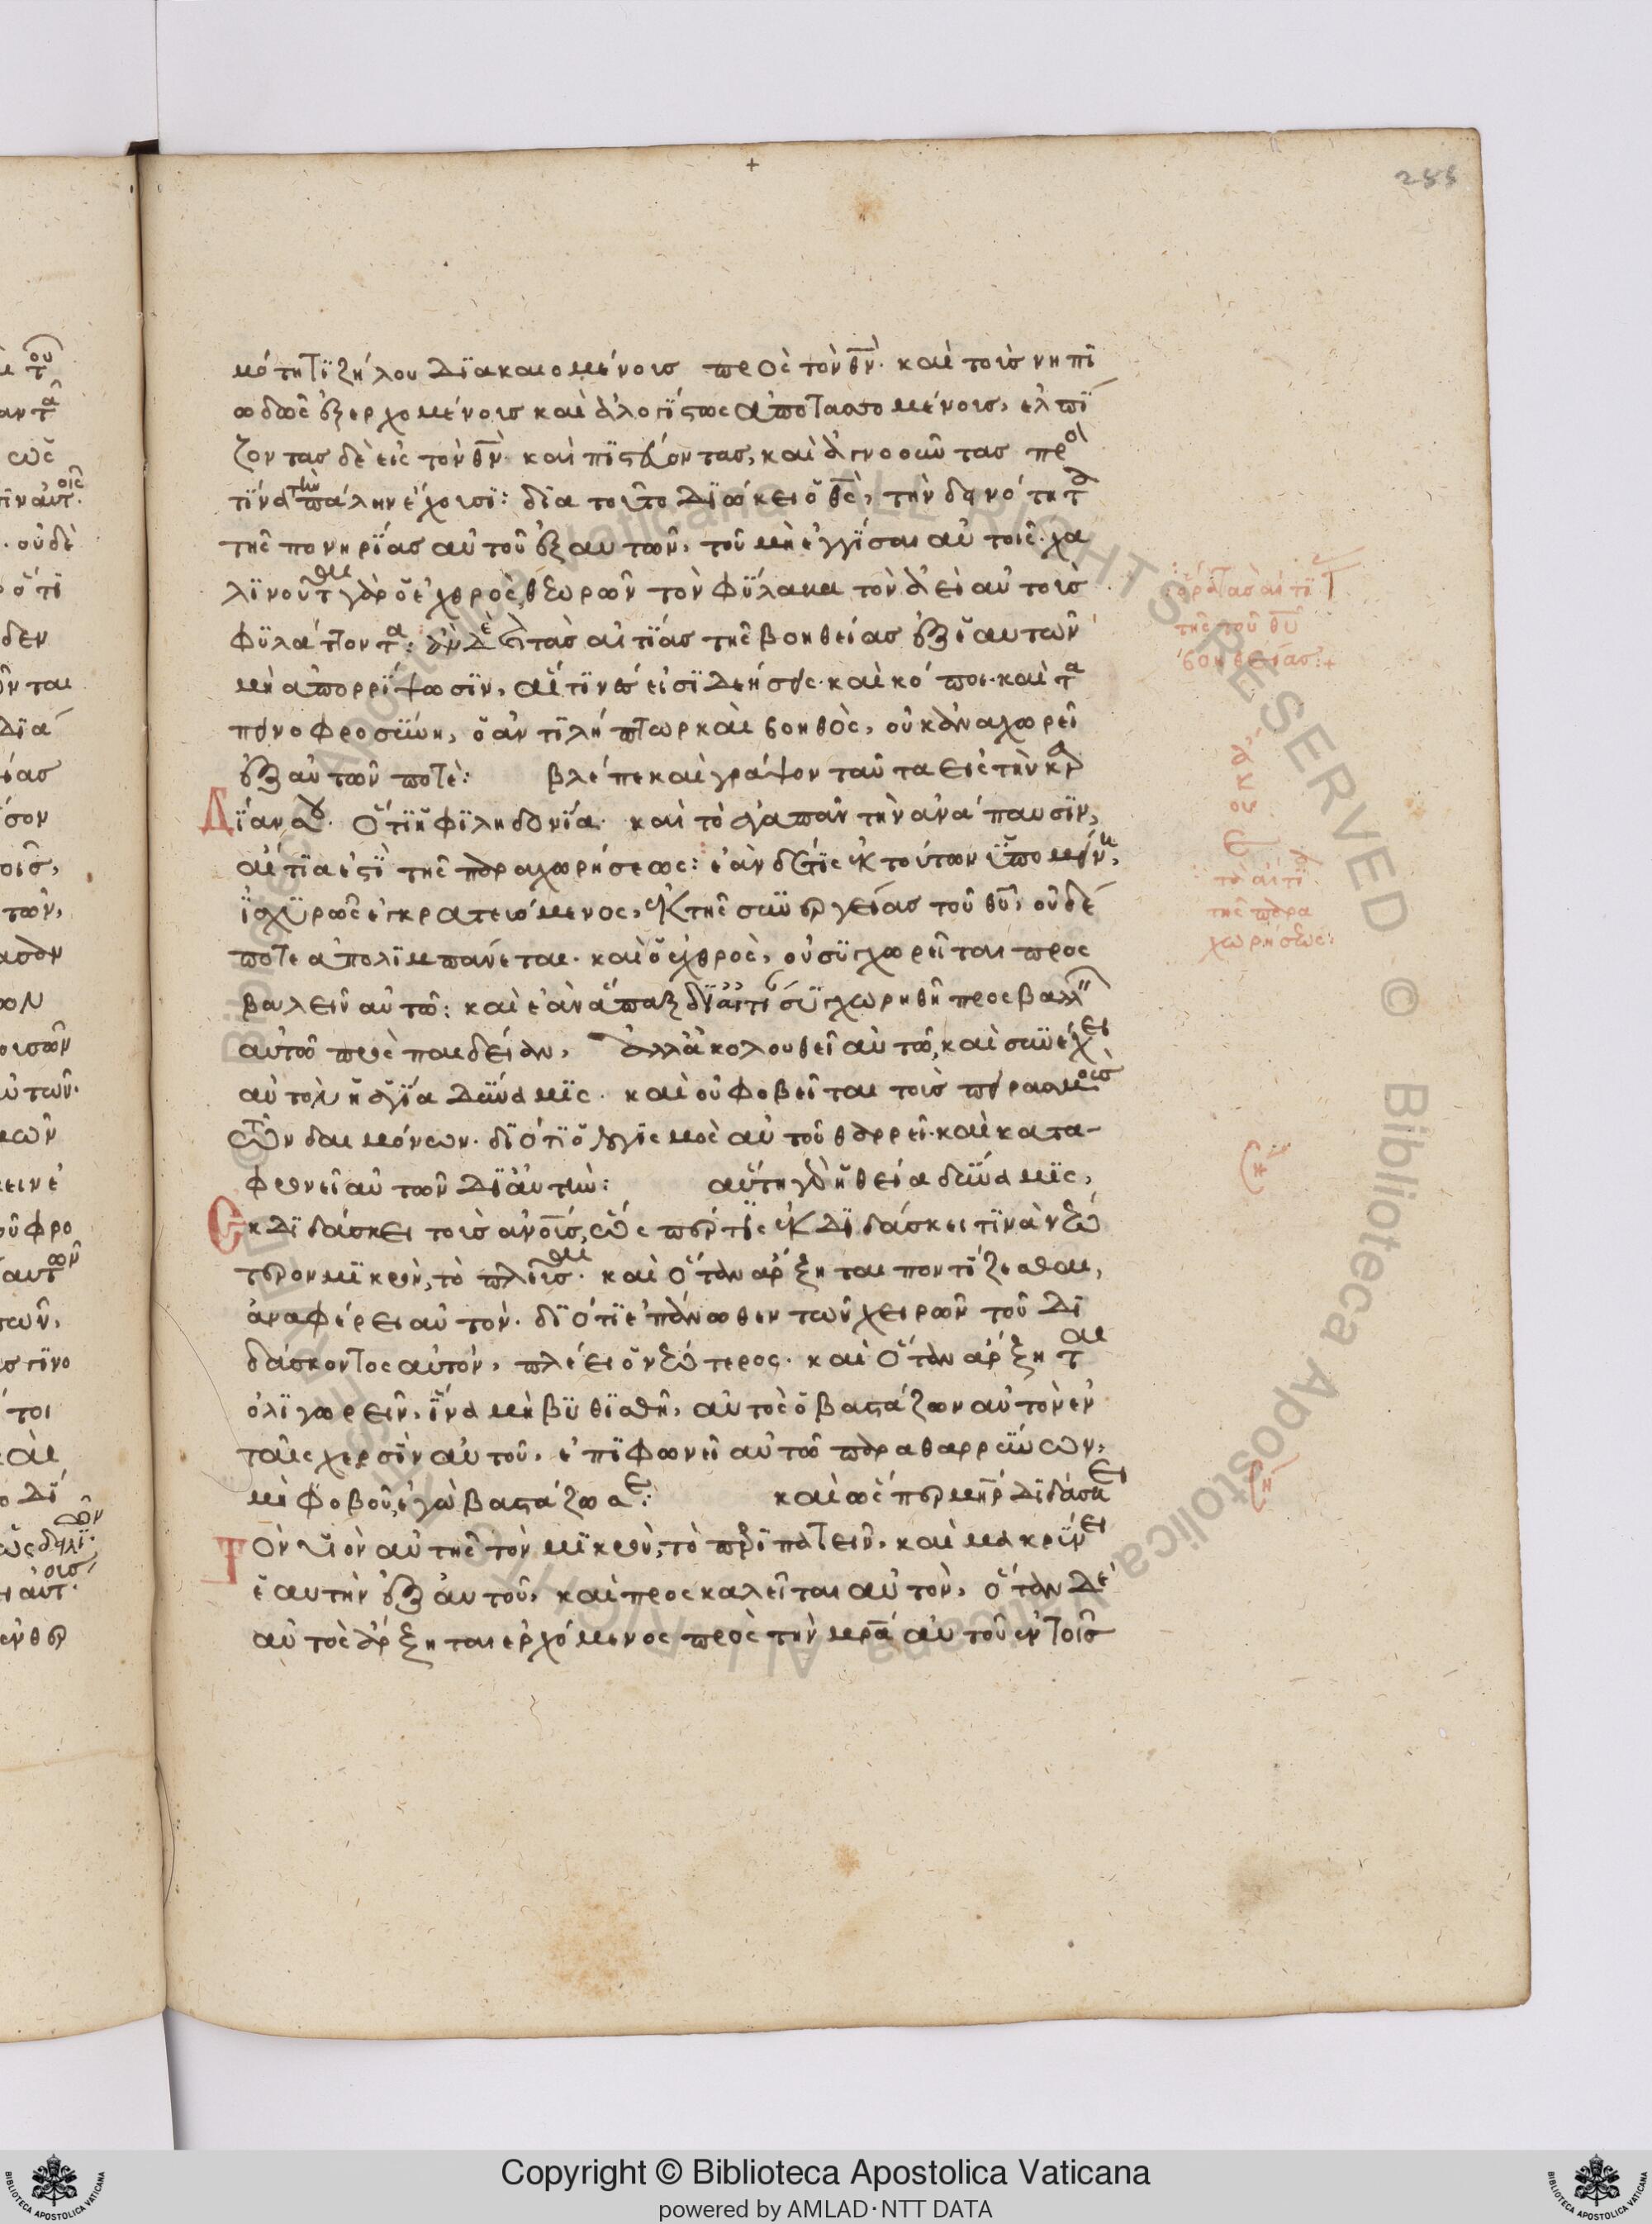 255
μότητι ζήλου διακαιομένοις πρὸς τὸν θν̄. καὶ τοῖς νηπι
ωδῶς ἐξερχομένοις καὶ ἀλογίστως ἀποτασσομένοις, ἐλπί
ζοντας δὲ εἰς τὸν θν̄. καὶ πιστεύοντας, καὶ ἀγνοοῦντας πρ
τίνα τὴν πάλην ἔχουσι: διὰ τοῦτο διώκει ὁ θς̄, τὴν δεινότητα
τῆς πονηρίας αὐτοῦ ἐξ αυτῶν, τοῦ μὴ ἐγγίσαι αὐτοῖς. χα
λινοῦται γὰρ ὁ ἐχθρὸς, θεωρῶν τὸν φύλακα τὸν ἀεὶ αὐτοὺς
φυλάττοντα: ἐὰν δὲ τὰς αἰτίας τῆς βοηθείας ἐξ ἑαυτῶν
μὴ ἀπορρίψωσιν, αἵτινές εἰσι δεήσεις. καὶ κόποι. καὶ τα
πεινοφροσύνη, ὁ ἀντιλήπτωρ καὶ βοηθὸς, οὐκ ἀναχωρεῖ
ἐξ αὐτῶν ποτὲ: βλέπε καὶ γράψον ταῦτα εἰς τὴν καρ
δίαν σου. ὅτι ἡ φιληδονία. καὶ τὸ ἀγαπᾶν τὴν ἀνάπαυσιν,
αἰτία ἐστὶ τῆς παραχωρήσεως: ἐὰν δέ τις ἐκ τούτων ὑπομείνῃ,
ἰσχυρῶς ἐγκρατευόμενος, ἐκ τῆς συνεργείας τοῦ θῡ, οὐδέ
ποτε ἀπολιμπάνεται. καὶ ὁ ἐχθρὸς, οὐ συγχωρεῖται προς
βαλεῖν αὐτῶ: καὶ ἐὰν ἅπαξ διά τι συγχωρηθῆ προσβαλεῖν
αὐτῶ πρὸς παιδείαν, ἀλλ' ἀκολουθεῖ αὐτῶ, καὶ συνέχει
αὐτὸν ἡ ἁγία δύναμις. καὶ οὐ φοβεῖται τοὺς πειρασμοὺς
τῶν δαιμόνων. διότι ὁ λογισμὸς αὐτοῦ θαρρεῖ. καὶ κατα-
φρονεῖ αὐτῶν δι' αὐτὴν: αὕτη γὰρ ἡ θεία δύναμις,
ἐκδιδάσκει τοὺς ἀνοῖς, ὥσπερ τίς ἐκδιδάσκει τινὰ νεώ
τερον μικρὸν, τὸ πλεῖσθαι. καὶ ὅταν ἄρξηται ποντίζεσθαι,
ἀναφέρει αὐτόν. διότι ἐπάνωθεν τῶν χειρῶν τοῦ δι
δάσκοντος αὐτόν, πλέει ὁ νεώτερος. καὶ ὅταν ἄρξηται
ὀλιγωρεῖν, ἵνα μὴ βυθισθῆ, αὐτὸς ὁ βαστάζων αὐτὸν ἐν
ταῖς χερσὶν αὐτοῦ, ἐπιφωνεῖ αὐτῶ παραθαρρύνων,
μὴ φοβοῦ, ἐγὼ βαστάζω σε: καὶ ὥσπερ μηρ̄ διδάσκει
τὸν υἱὸν αὐτῆς τὸν μικρὸν, τὸ περιπατεῖν. καὶ μακρύνει
ἑαυτὴν ἐξ αὐτοῦ, καὶ προσκαλεῖται αὐτὸν, ὅταν δὲ
αὐτὸς ἄρξηται ἐρχόμενος πρὸς τὴν μρ̄α αὐτοῦ ἐν τοῖς
ὅρα τὰς αἰτί
τῆς τοῦ θῡ
βοηθείας:+
τὰ αἴτι
τῆς παρα
χωρήσεως:
Copyright © Biblioteca Apostolica Vaticana
powered by AMLAD·NTT DATA